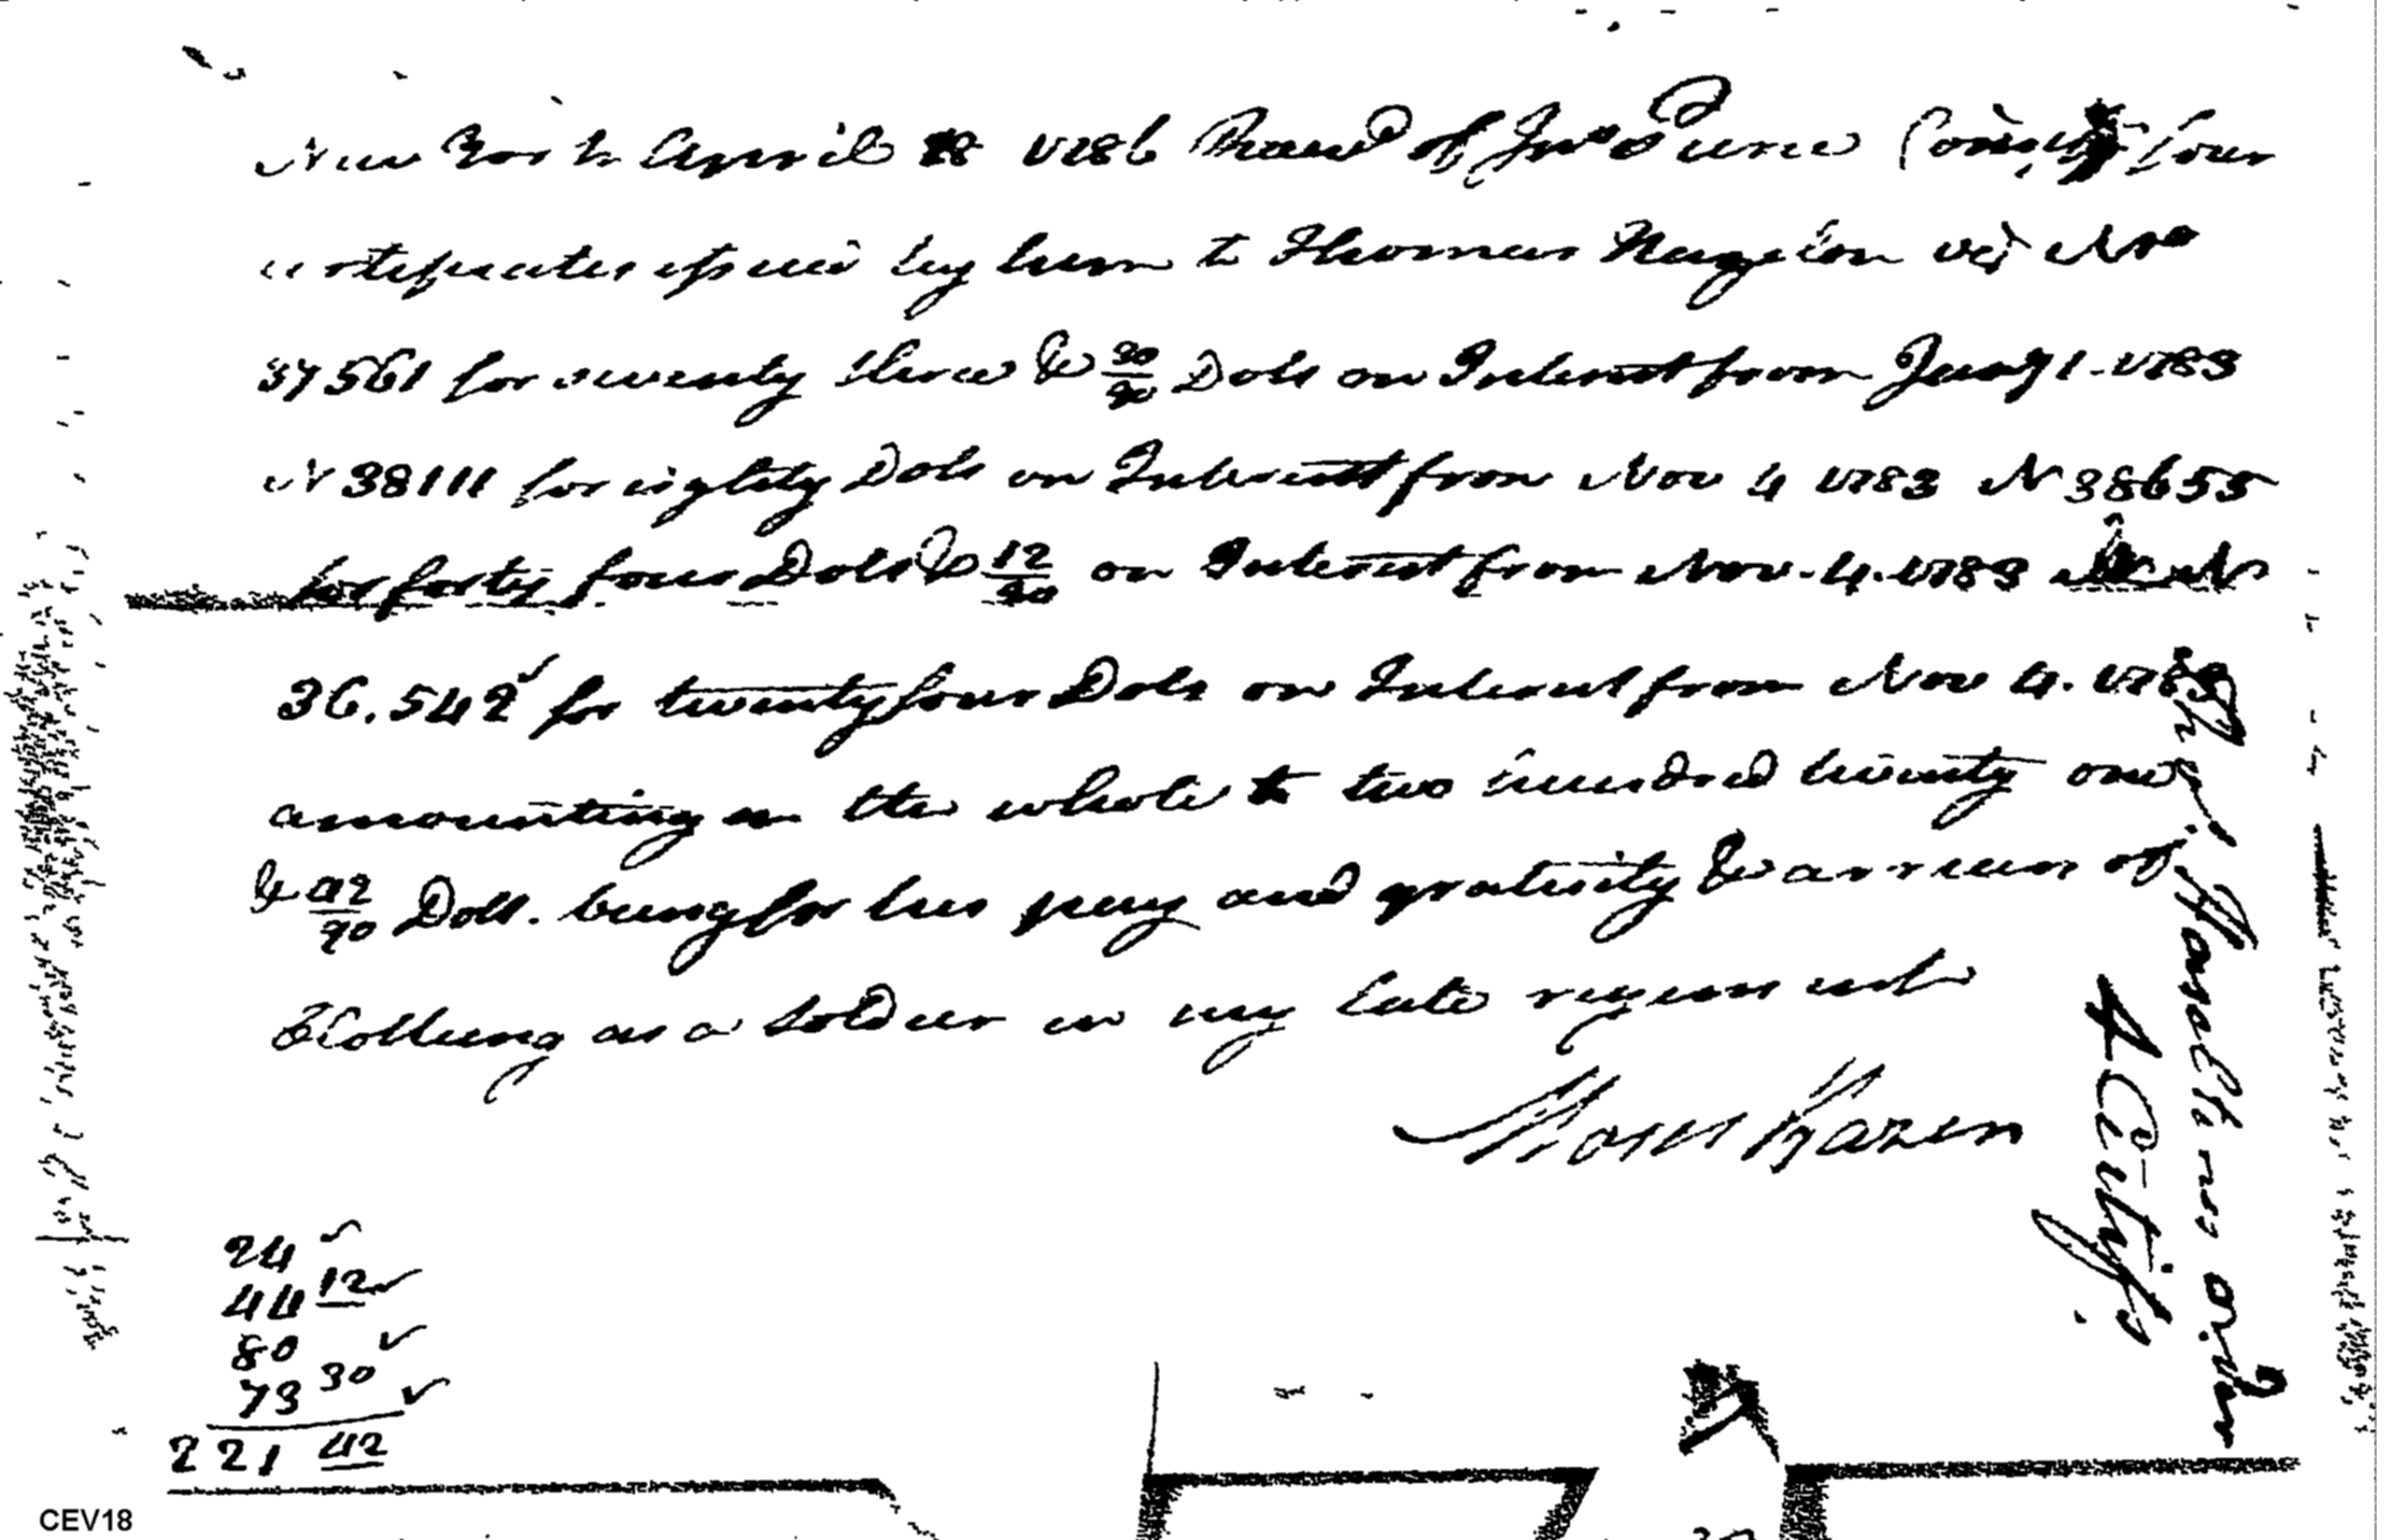 New York April 18 1786 Recd of Jno Pierce Comisr four
certificates issued by him to Thomas Nugeton viz No
37561 for seventy three & 30/90 Dols on Interest from Jany 1 - 1783
N 38111 for eighty Dols on Interest from Nov 4 1783 N 38655
for forty four Dols & 12/90 on Interest from Nov. 4. 1783 N
36.542 for twenty four Dols on Interest from Nov 4. 1783
amounting in the whole to two hundred twenty one
& 42/90 Doll. being for his pay and gratuity & arrears of
Clothing as a soldier in my late regiment
Moses Hazen
24
44 12
80
73 30
221 42
4 Certifs.
CEV18